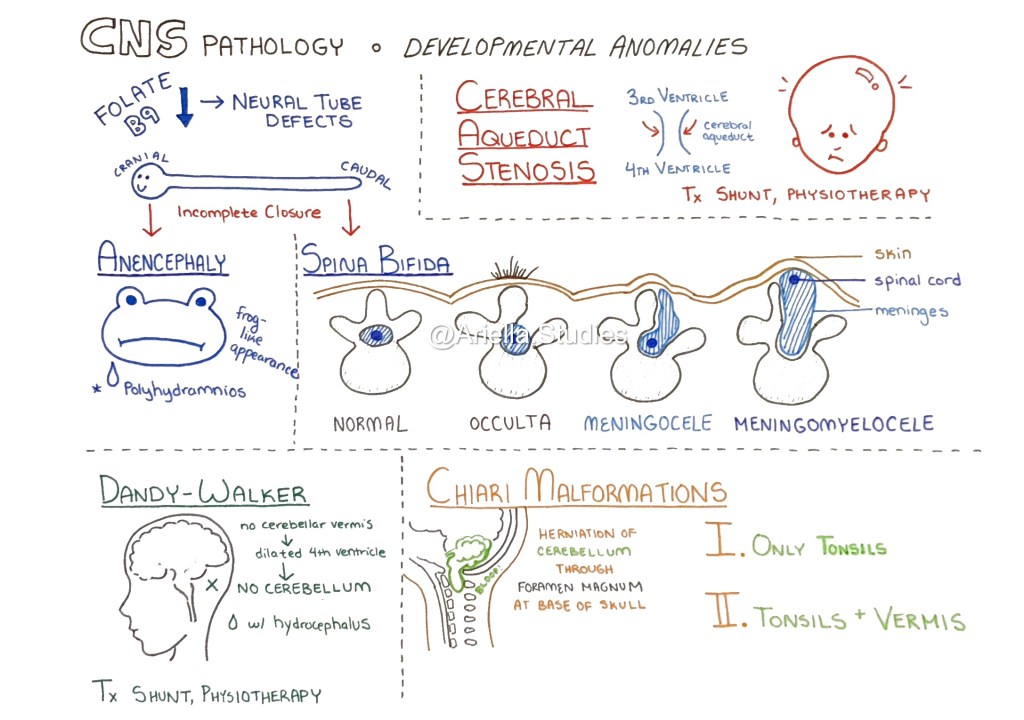 CNS PATHOLOGY • DEVELOPMENTAL ANOMALIES
FOLATE
B9
→ NEURAL TUBE
DEFECTS
CRANIAL
CAUDAL
Incomplete Closure
CEREBRAL
AQUEDUCT
STENOSIS
3RD VENTRICLE
cerebral
aqueduct
4TH VENTRICLE
Tx SHUNT, PHYSIOTHERAPY
ANENCEPHALY
frog-
like
appearance
* Polyhydramnios
SPINA BIFIDA
skin
spinal cord
meninges
@Ariella Studies
NORMAL
OCCULTA
MENINGOCELE
MENINGOMYELOCELE
DANDY-WALKER
no cerebellar vermis
dilated 4th ventricle
X NO CEREBELLUM
w/ hydrocephalus
Tx SHUNT, PHYSIOTHERAPY
CHIARI MALFORMATIONS
BLOOP!
HERNIATION OF
CEREBELLUM
THROUGH
FORAMEN MAGNUM
AT BASE OF SKULL
I. ONLY TONSILS
II. TONSILS + VERMIS